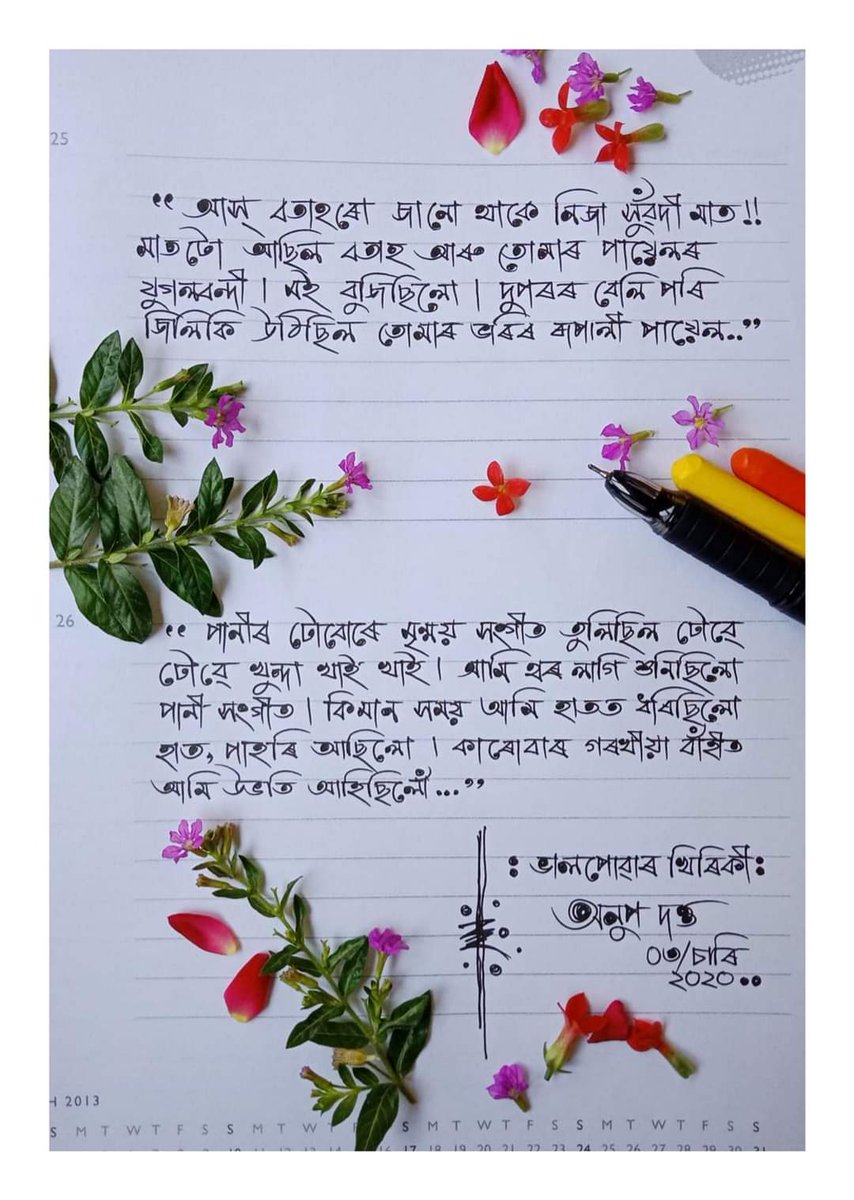 25
“ আস্ বতাহৰো জানো থাকে নিজা সুঁৰদী মাত!!
মাতটো আছিল বতাহ আৰু তোমাৰ পায়েলৰ
যুগলবন্দী । মই বুজিছিলো । দুপৰৰ বেলি পৰি
জিলিকি উঠিছিল তোমাৰ ভৰিৰ ৰূপালী পায়েল..”
26
“ পানীৰ টোবোৰে মৃন্ময় সংগীত তুলিছিল টোৱে
টোৱে খুন্দা খাই খাই । আমি ঘৰ লাগি শুনিছিলো
পানী সংগীত । কিমান সময় আমি হাতত ধৰিছিলো
হাত, পাহৰি আছিলো । কাৰোবাৰ গৰখীয়া বাঁহীত
আমি উভতি আহিছিলোঁ...”
: ভালপোৱাৰ খিৰিকী:
অনুপ দত্ত
০৩/চাৰি
২০২০..
H 2013
S M T W T F S S M T W T F S S M T W T F S S M T W T F S S
17 18 19 20 21 22 23 24 25 26 27 28 29 30 31